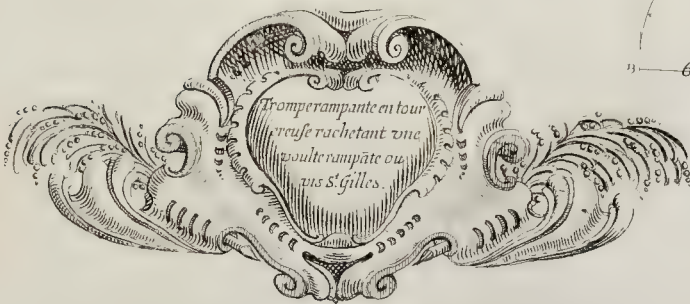 Trompe rampante en tour
creuse rachetant vne
voulte rampãte ou
vis S.t Gilles.
13
6